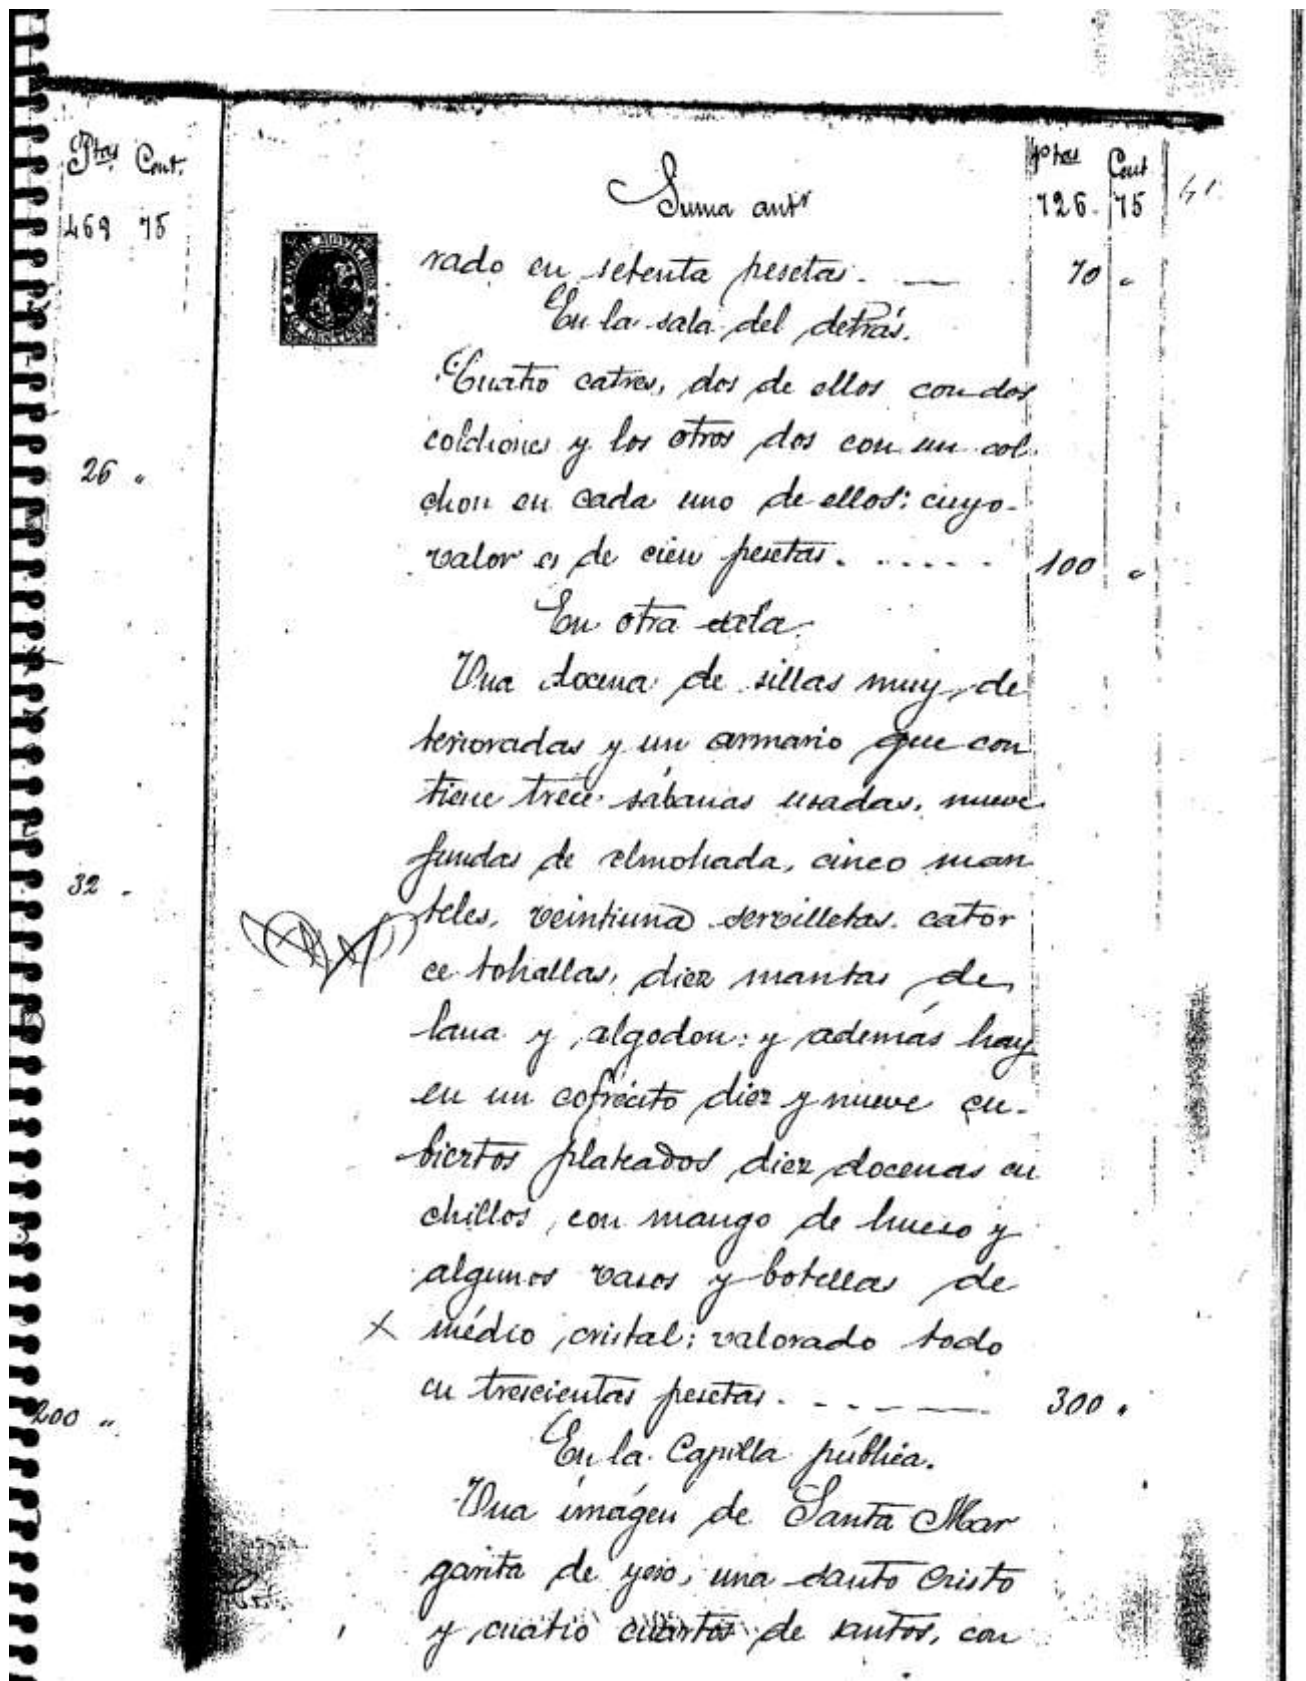 Ptas Cent.
469 75
26 "
32 "
200 "
Suma antr
Ptas Cent
726. 75
rado en setenta pesetas. — 70 "
En la sala del detrás.
Cuatro catres, dos de ellos con dos
colchones y los otros dos con un col-
chon en cada uno de ellos: cuyo
valor es de cien pesetas. . . . . . 100 "
En otra sala.
Una docena de sillas muy de
terioradas y un armario que con
tiene trece sábanas usadas, nueve
fundas de almohada, cinco man
teles, veintiuna servilletas. cator
ce tohallas, diez mantas de
lana y algodon: y además hay
en un cofrecito diez y nueve cu-
biertos plateados diez docenas cu
chillos, con mango de hueso y
algunos vasos y botellas de
médio cristal: valorado todo
en trescientas pesetas. - - - — 300 "
En la Capilla pública.
Una imágen de Santa Mar
garita de yeso, una santo Cristo
y cuatro de santos, con